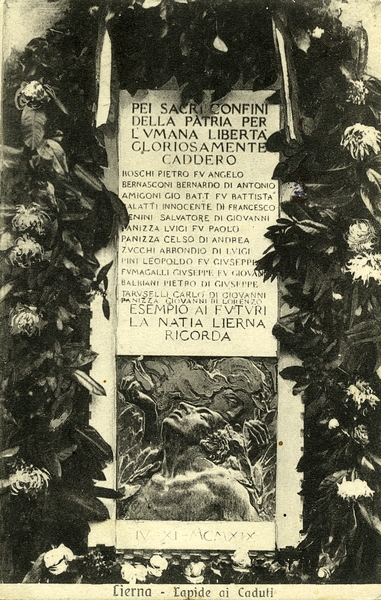 PEI SACRI CONFINI
DELLA PATRIA PER
L'VMANA LIBERTA
GLORIOSAMENTE
CADDERO
BOSCHI PIETRO FV ANGELO
BERNASCONI BERNARDO DI ANTONIO
AMIGONI GIO BATT FV BATTISTA
BALATTI INNOCENTE DI FRANCESCO
SALVATORE DI GIOVANNI
PANIZZA LUIGI FV PAOLO
PANIZZA CELSO DI ANDREA
ZVCCHI ABBONDIO DI LVIGI
PINI LEOPOLDO FV GIVSEPPE
FVMAGALLI GIVSEPPE FV GIOVAN
BALBIANI PIETRO DI GIVSEPPE
TARVSELLI CARLO DI GIOVANNI
PANIZZA GIOVANNI DI LORENZO
ESEMPIO AI FVTVRI
LA NATIA LIERNA
RICORDA
IV-XI-MCMXIX
Lierna - Lapide ai Caduti